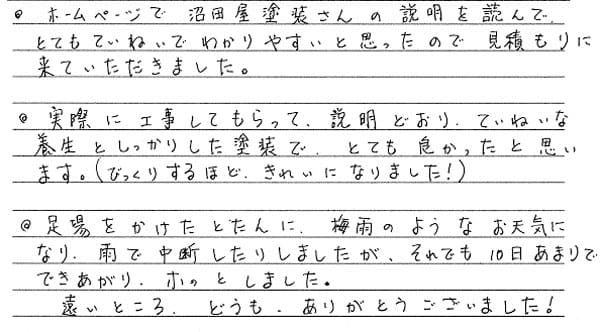 ◎ ホームページで 沼田屋塗装さんの説明を読んで、
とてもていねいでわかりやすいと思ったので 見積もりに
来ていただきました。
◎ 実際に工事してもらって、説明どおり、ていねいな
養生としっかりした塗装で、とても良かったと思い
ます。(びっくりするほど、きれいになりました!)
◎ 足場をかけたとたんに、梅雨のようなお天気に
なり、雨で中断したりしましたが、それでも10日あまりで
できあがり、ホッとしました。
遠いところ、どうも、ありがとうございました!